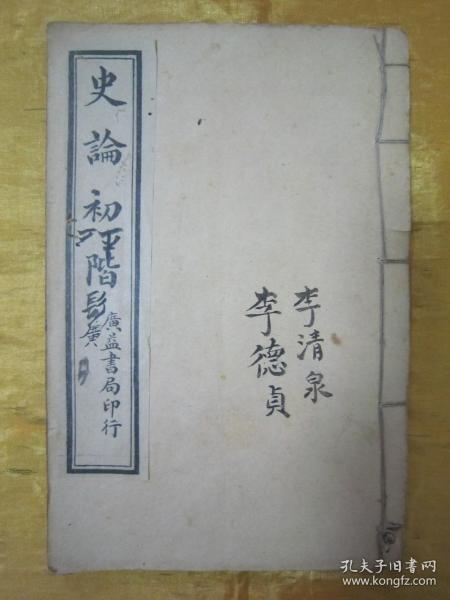 史論初階
廣益書局印行
李清泉
李德貞
孔夫子旧书网
www.kongfz.com